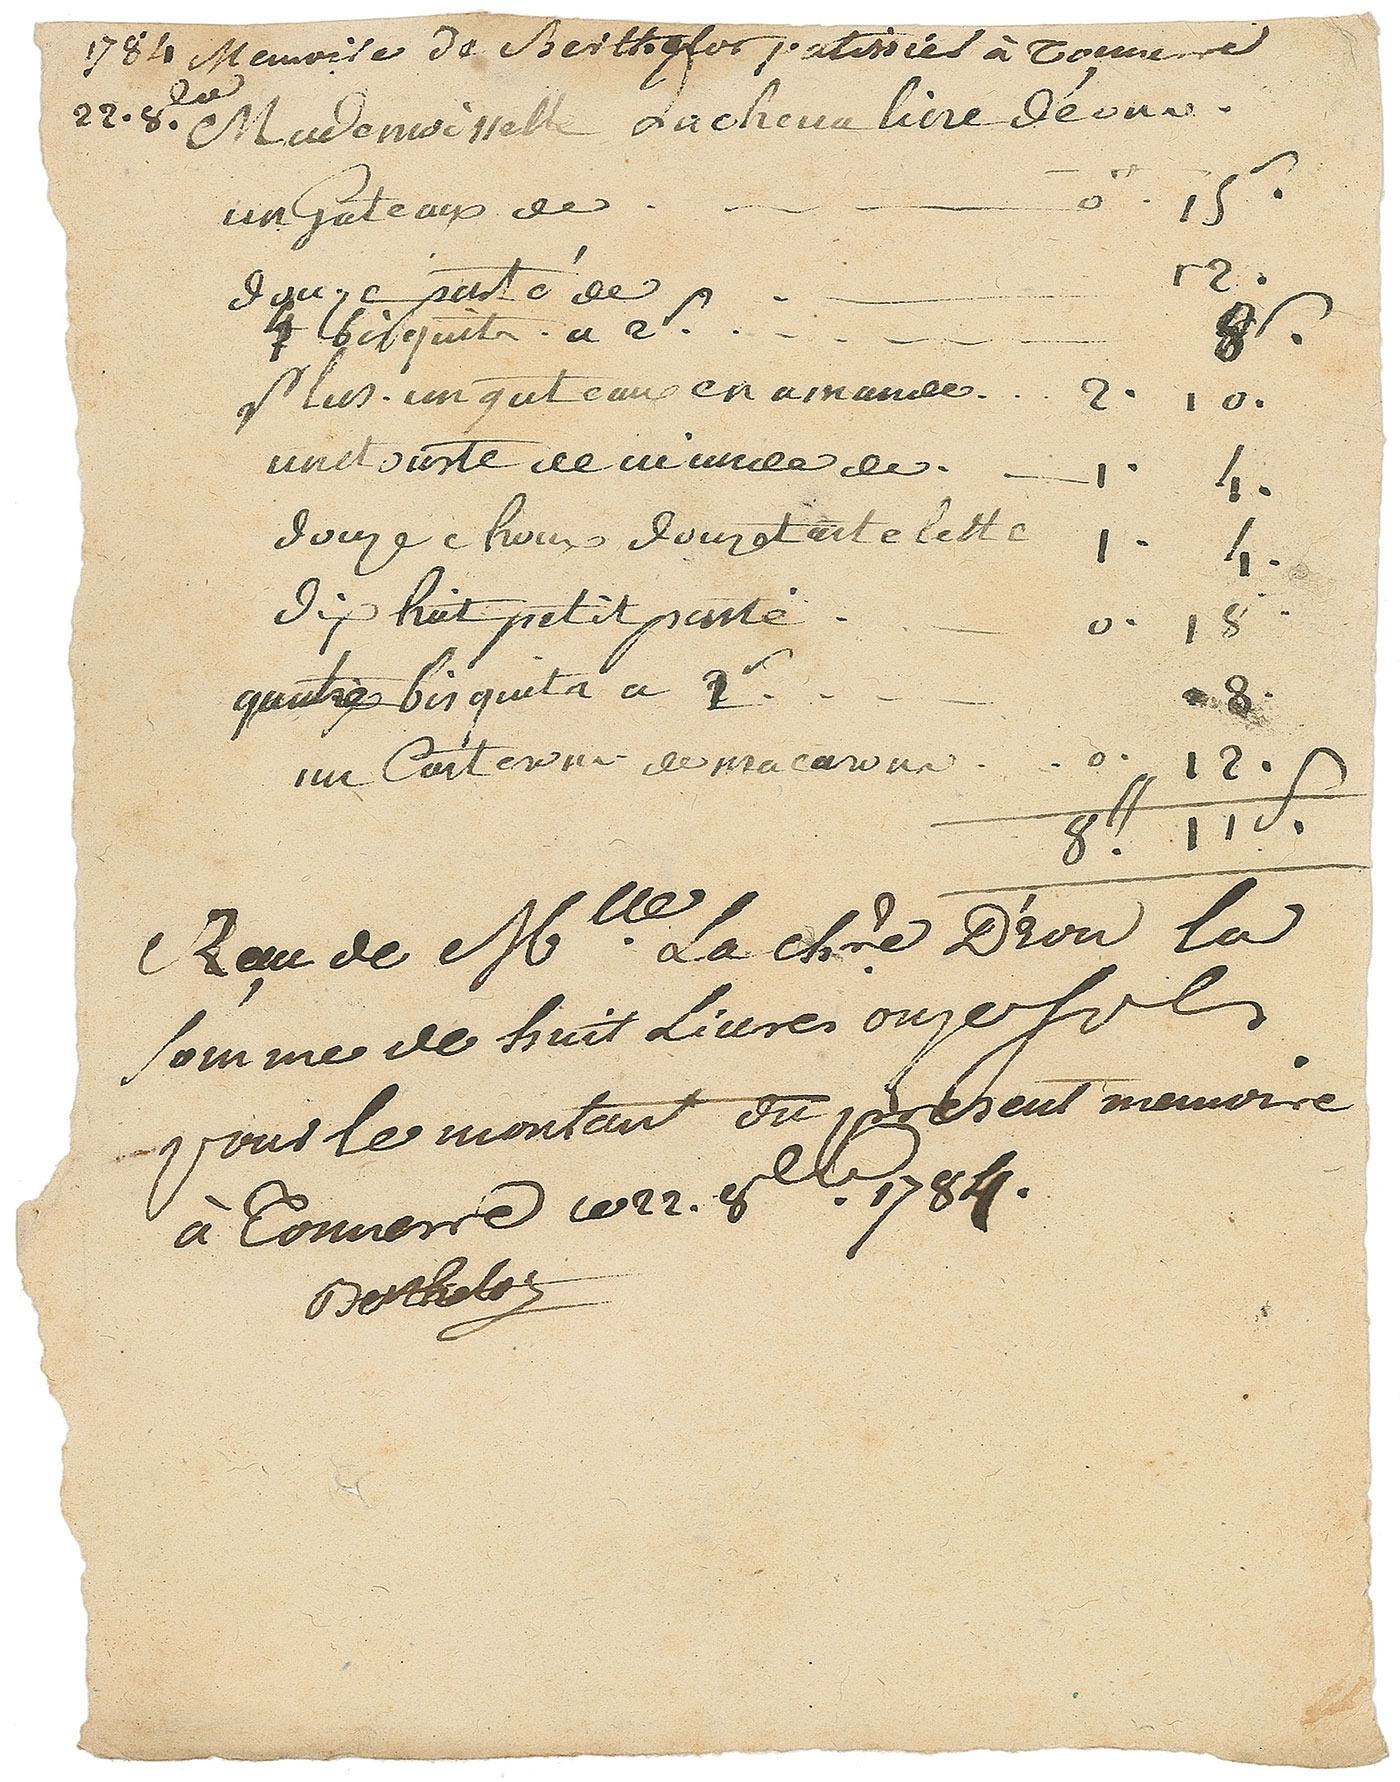 1784 Memoire de Berthelot patissier à Tonnerre
22. 8.bre Mademoisselle Lachevaliere déonne.
un gateaux de 0tt. 15s.
douze pasté de 12.
4 bisquits. a 2s. 8s.
plus. un gateaux en amande. 2. 10.
une tourte de viande de. 1. 4.
douze choux douze tartelette 1. 4.
dix huit petit pasté 0. 18
quatre bisquits a 2s. 8.
un Carteronne de macaronne 0. 12.
8tt. 11s.
Reçu de Mlle. La chre D'Eon la
somme de huit Livres onze sols
pour le montant du present memoire
à Tonnerre ce 22. 8bre. 1784.
Berthelot